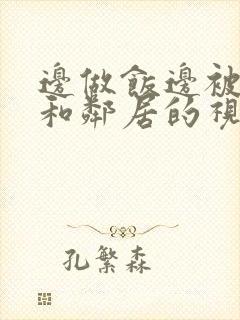 邊做飯邊被
和鄰居的視
孔繁森